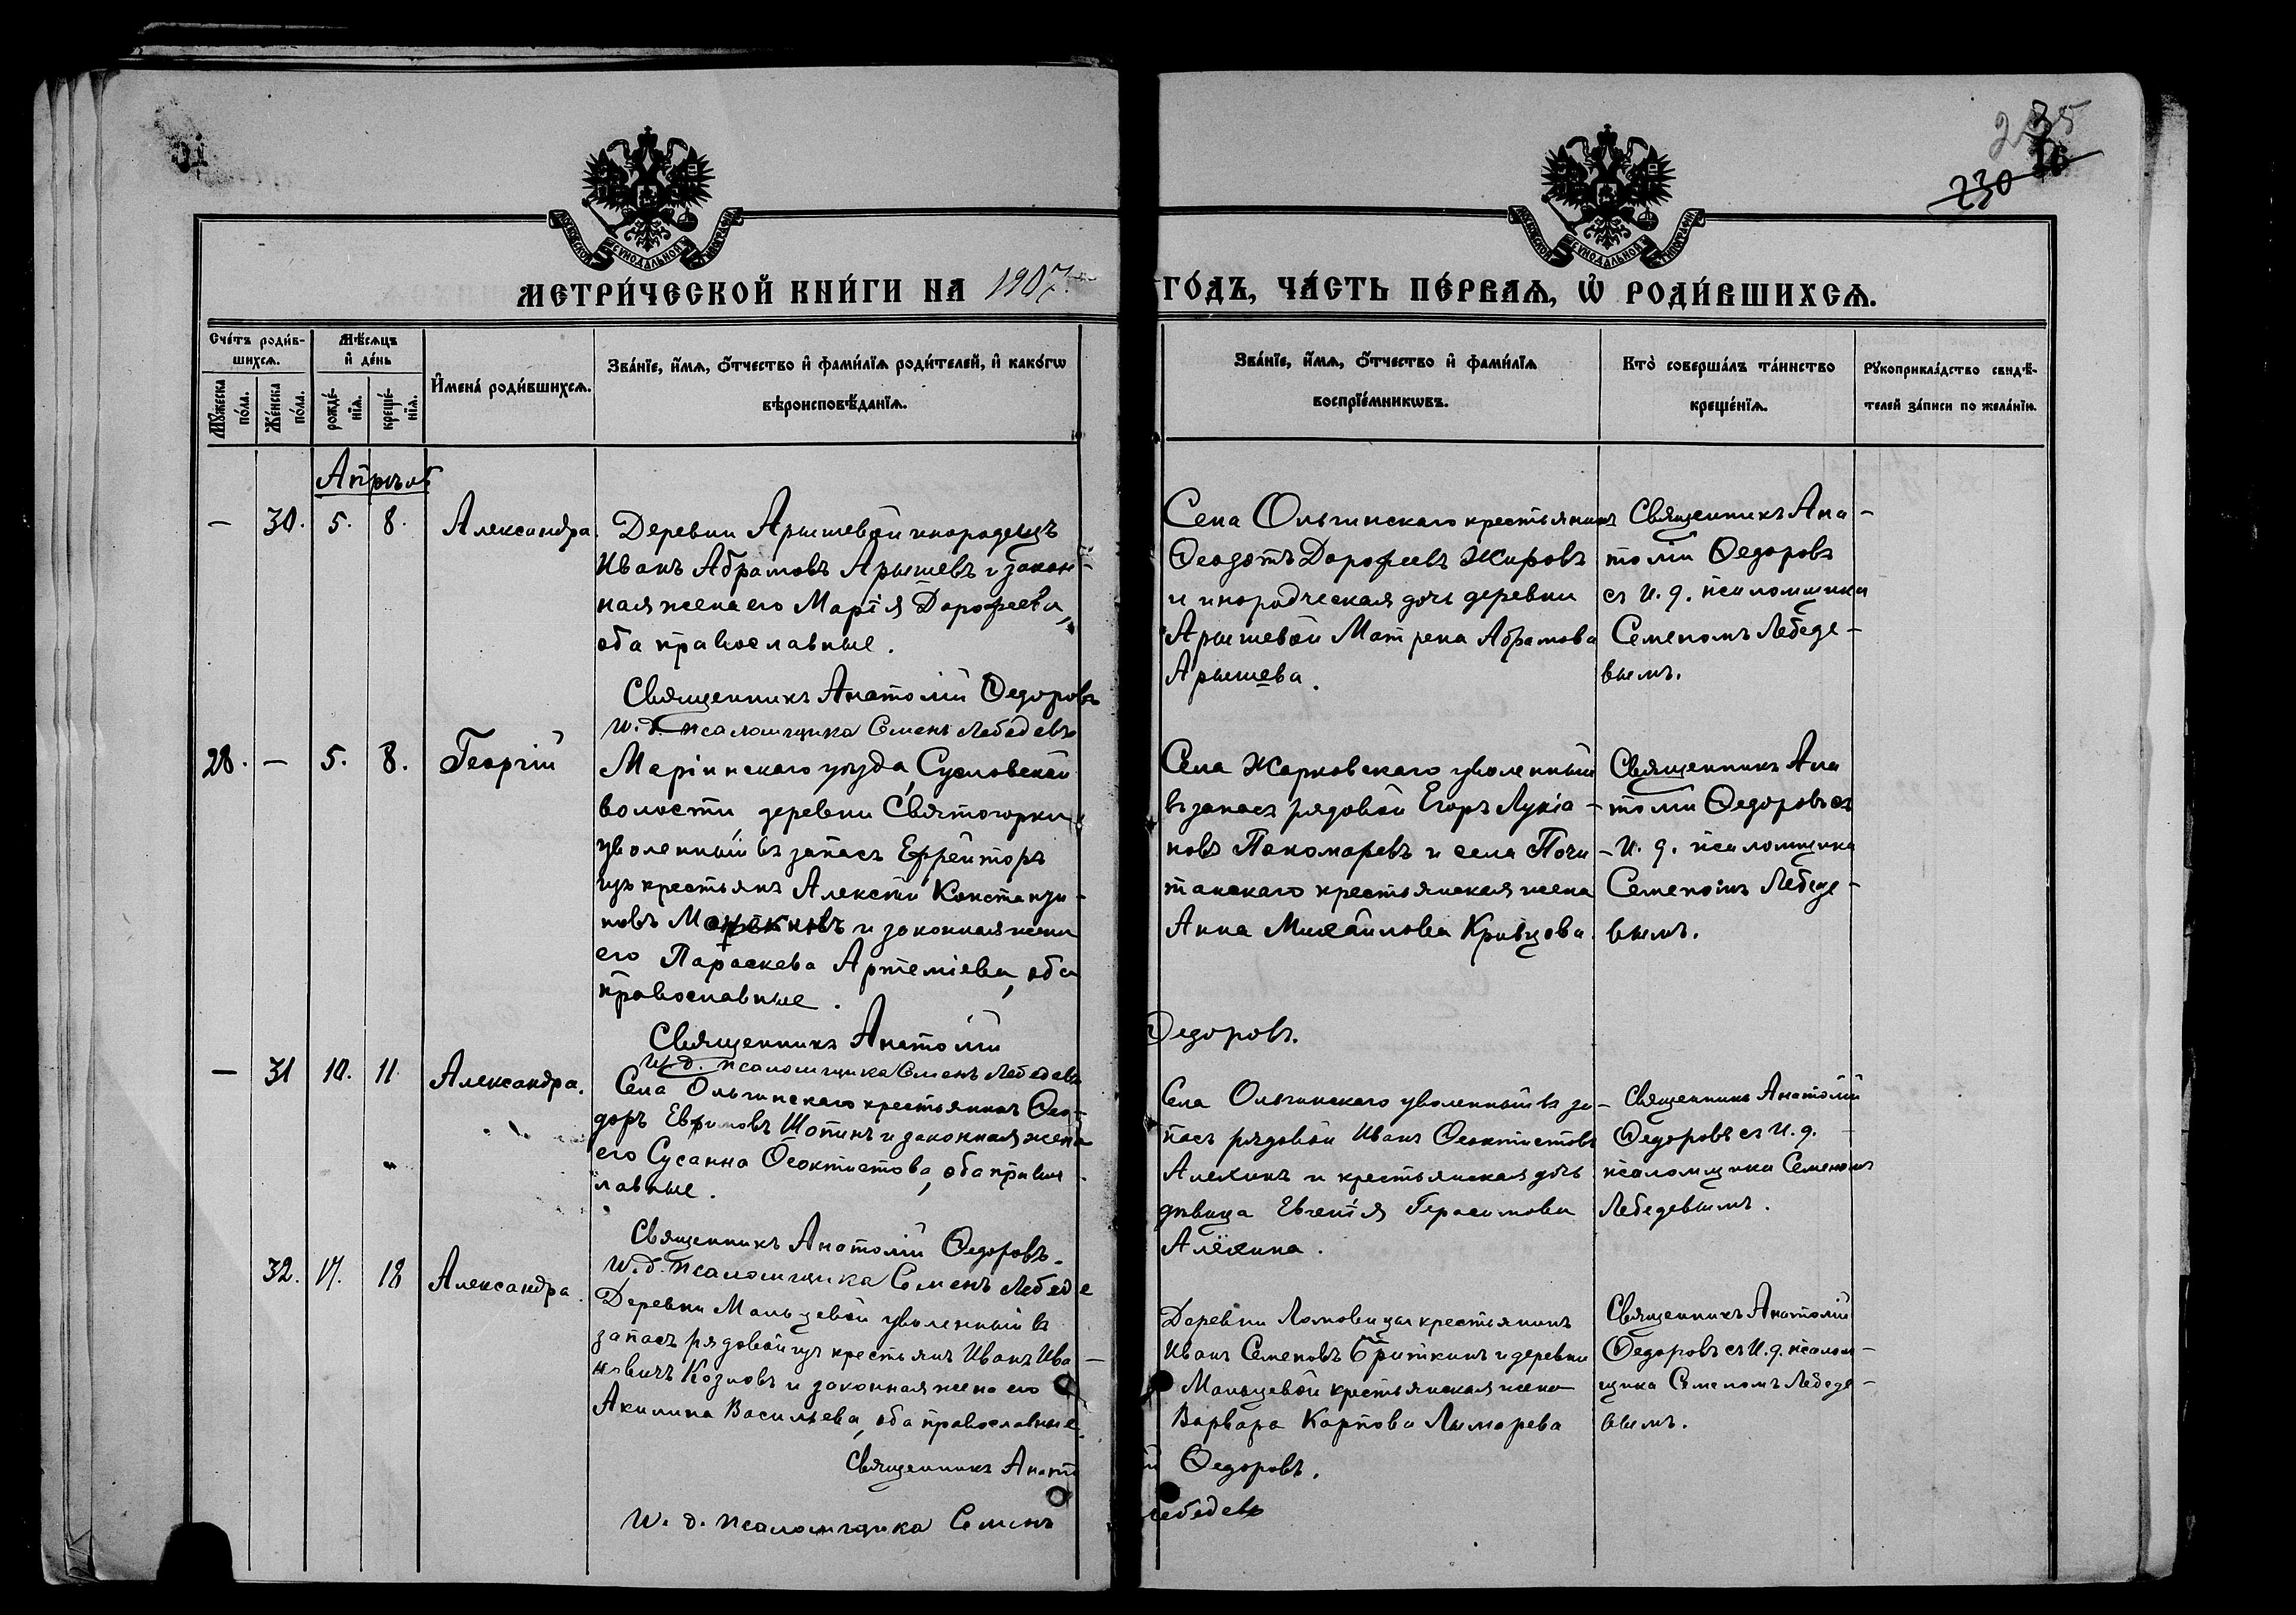 235
36
230
МОСКОВСКОЙ СѴНОДАЛЬНОЙ ТИПОГРАФІИ
МОСКОВСКОЙ СѴНОДАЛЬНОЙ ТИПОГРАФІИ
МЕТРИ́ЧЕСКОЙ КНИ́ГИ НА 1907
ГО́ДЪ, ЧА́СТЬ ПЕ́РВАѦ, Ѡ҆ РОДИ́ВШИХСѦ.
Сче́тъ роди́в-
шихсѧ.
Мꙋ́жеска по́ла.
Же́нска по́ла.
Мѣ́сѧцъ
и҆ де́нь
рожде́-
нїѧ.
креще́-
нїѧ.
И҆мена̀ роди́вшихсѧ.
Зва́нїе, и҆́мѧ, ѻ҆́тчество и҆ фами́лїѧ роди́телей, и҆ како́гѡ
вѣроисповѣ́данїѧ.
Зва́нїе, и҆́мѧ, ѻ҆́тчество и҆ фами́лїѧ
воспрїе́мникѡвъ.
Кто̀ соверша́лъ та́инство
креще́нїѧ.
Рꙋкоприкла́дство свидѣ́-
телей за́писи по жела́нїю.
Апрѣль
— 30. 5. 8. Александра.
Деревни Арышевой инородецъ
Иванъ Абрамовъ Арышевъ и закон-
ная жена его Марія Дорофеева,
оба православные.
Священникъ Анатолій Ѳедоровъ
И. д. псаломщика Семенъ Лебедевъ
Села Ольгинскаго крестьянинъ
Ѳеодотъ Дорофеевъ Жировъ
и инородческая дочь деревни
Арышевой Матрена Абрамова
Арышева.
Священникъ Ана-
толій Ѳедоровъ
съ И. д. псаломщика
Семеномъ Лебеде-
вымъ.
28. — 5. 8. Георгій
Маріинскаго уѣзда, Сусловской
волости, деревни Святогорки
уволенный въ запасъ Ефрейторъ
изъ крестьянъ Алексѣй Константи-
новъ и законная жена
его Параскева Артеміева, оба
православные.
Священникъ Анатолій
Ѳедоровъ.
И. д. псаломщика Семенъ Лебедевъ
Села Жарковскаго уволенный
въ запасъ рядовой Егоръ Лукіа-
новъ Пономаревъ и села Почи-
танскаго крестьянская жена
Анна Михайлова Кривцова.
Священникъ Ана
толій Ѳедоровъ съ
И. д. псаломщика
Семеномъ Лебеде-
вымъ.
— 31 10. 11. Александра.
Села Ольгинскаго крестьянинъ Ѳео-
доръ Евфимовъ Шопинъ и законная жена
его Сусанна Ѳеоктистова, оба право-
славные.
Священникъ Анатолій Ѳедоровъ.
И. д. псаломщика Семенъ Лебеде
Села Ольгинскаго уволенный въ за-
пасъ рядовой Иванъ Ѳеоктистовъ
Алехинъ и крестьянская дочь
дѣвица Евгенія Герасимова
Алёхина.
Священникъ Анатолій
Ѳедоровъ съ И. д.
псаломщика Семеномъ
Лебедевымъ.
32. 17. 18 Александра.
Деревни Мальцевой уволенный въ
запасъ рядовой изъ крестьянъ Иванъ Ива-
новичъ Козловъ и законная жена его
Акилина Васильева, оба православные.
Священникъ Анато
й Ѳедоровъ.
И. д. псаломщика Семенъ
Лебедевъ
Деревни Ломовицы крестьянинъ
Иванъ Семеновъ Бриткинъ и деревни
Мальцевой крестьянская жена
Варвара Карпова Лымарева
Священникъ Анатолій
Ѳедоровъ съ И. д. псалом-
щика Семеномъ Лебеде-
вымъ.